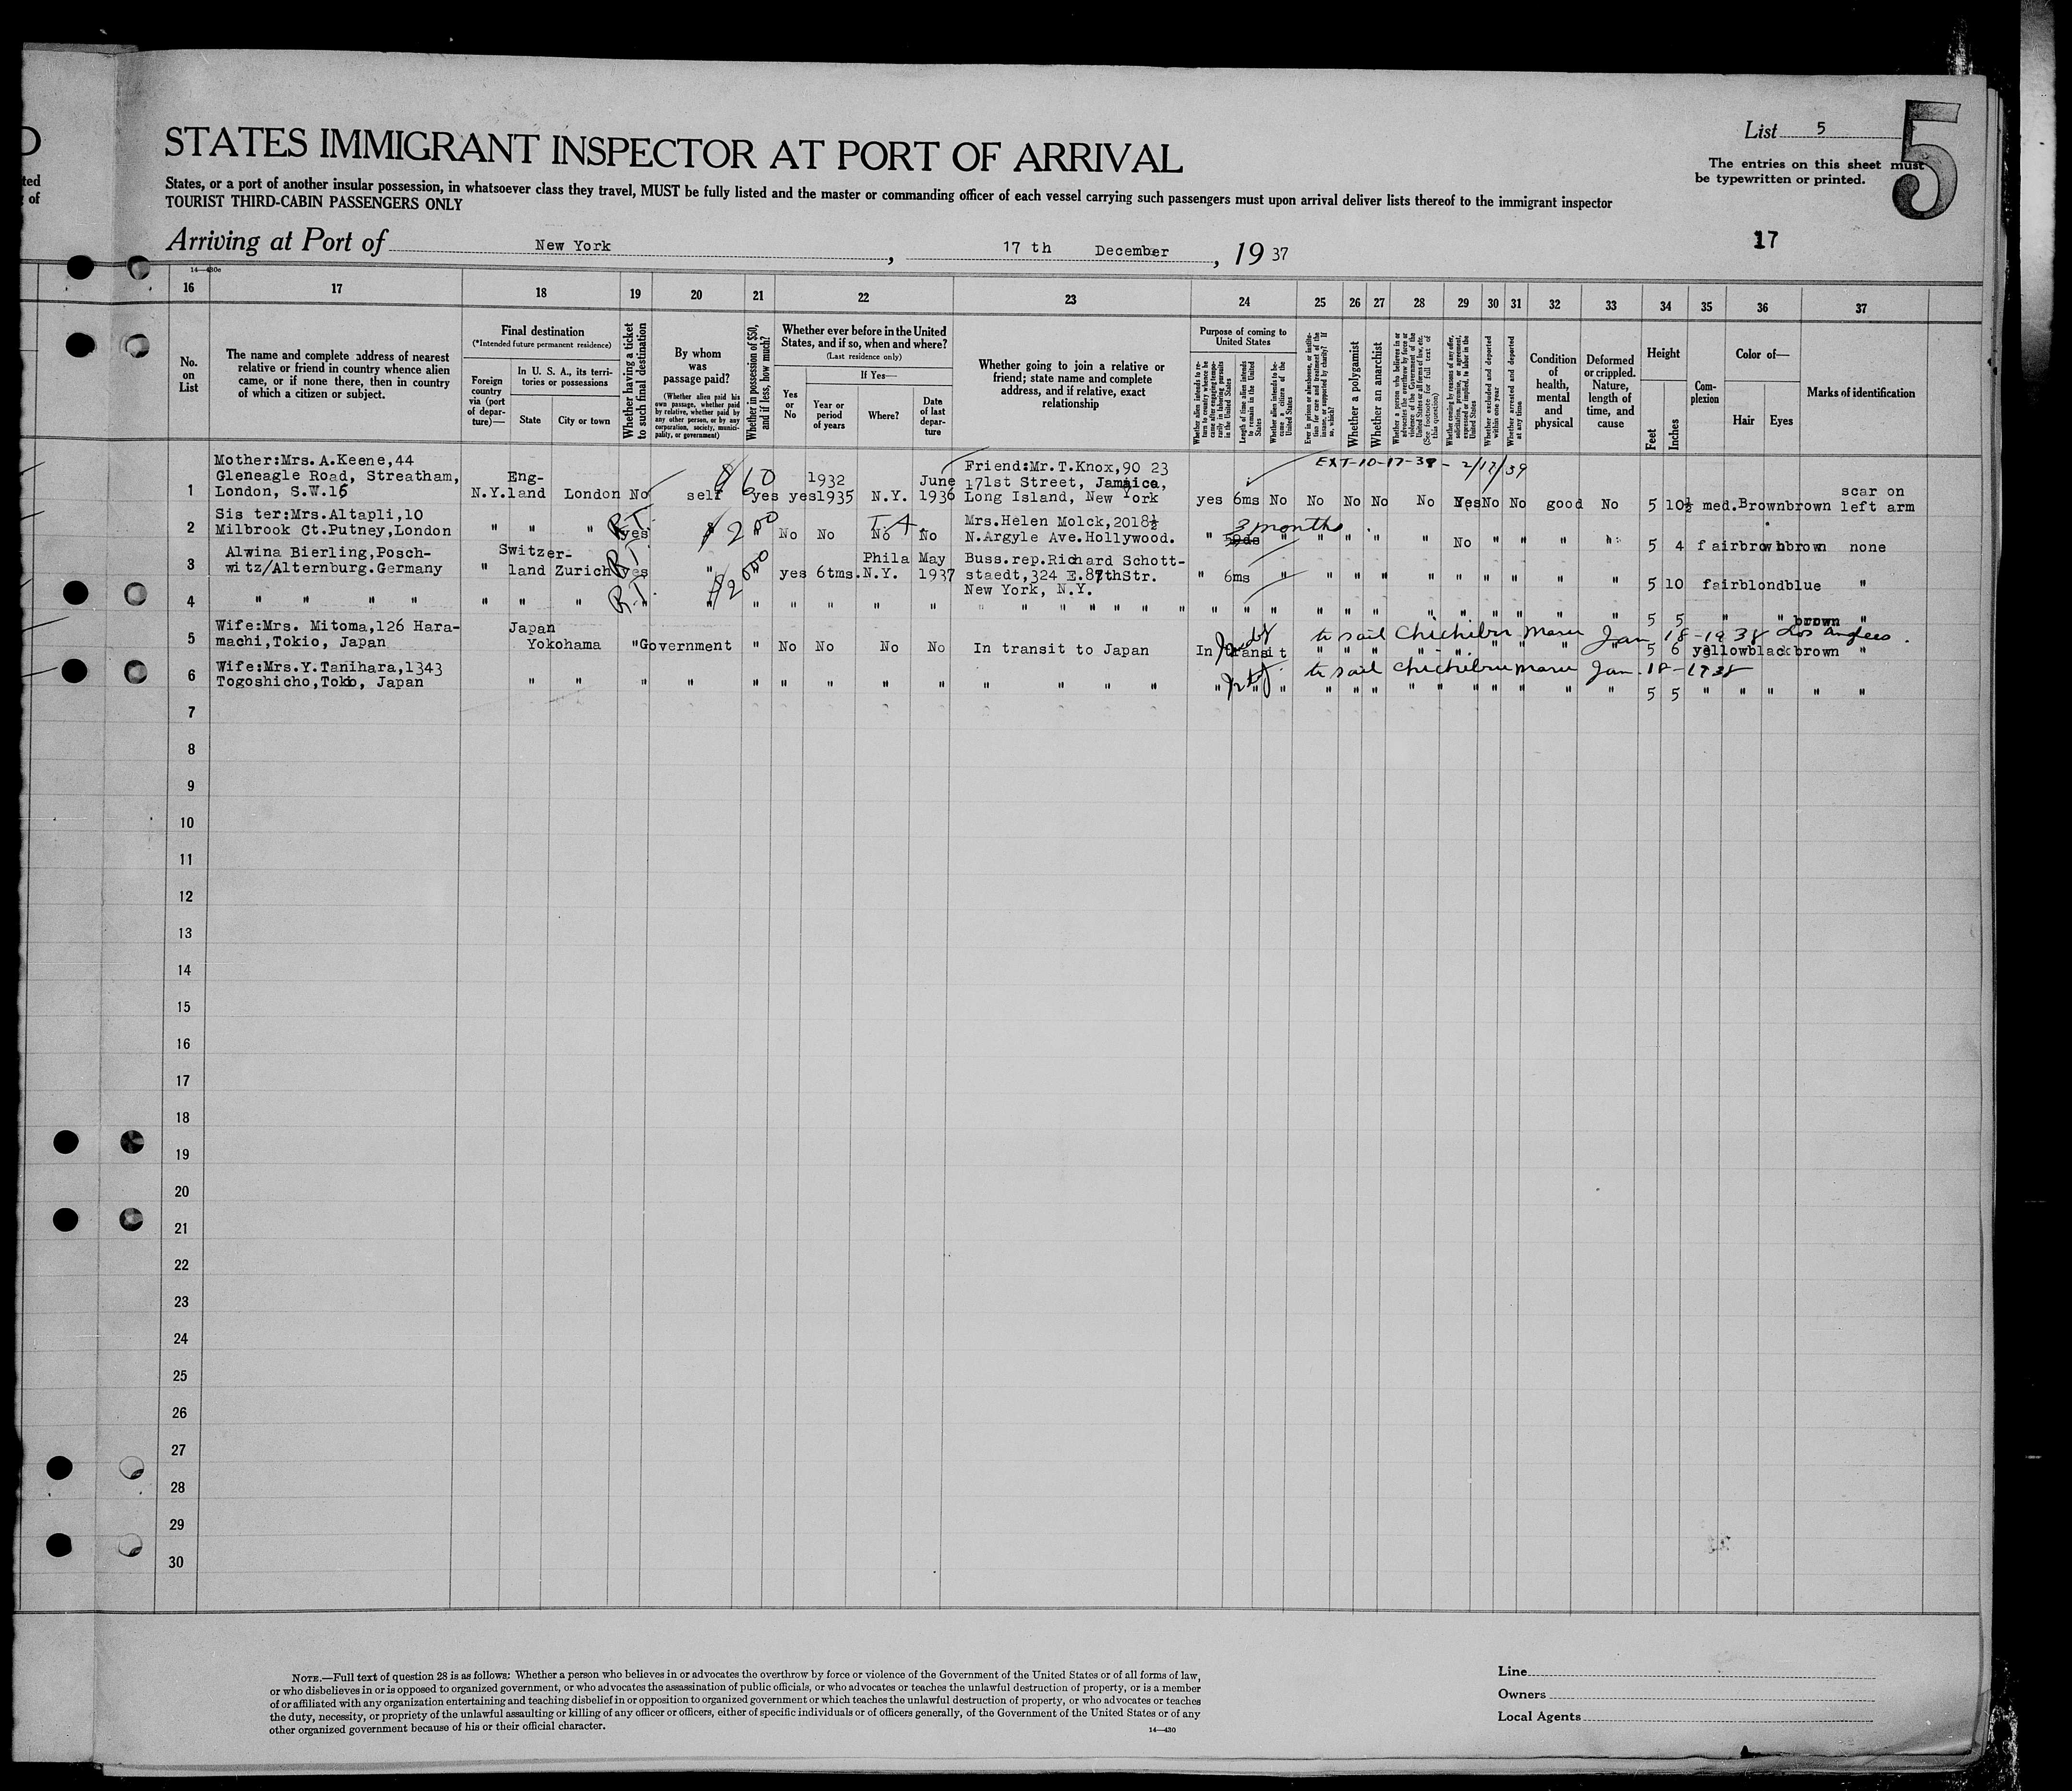 List 5
5
The entries on this sheet must
be typewritten or printed.
STATES IMMIGRANT INSPECTOR AT PORT OF ARRIVAL
ted
of
States, or a port of another insular possession, in whatsoever class they travel, MUST be fully listed and the master or commanding officer of each vessel carrying such passengers must upon arrival deliver lists thereof to the immigrant inspector
TOURIST THIRD-CABIN PASSENGERS ONLY
Arriving at Port of New York, 17 th December, 19 37
17
16 17 18 19 20 21 22 23 24 25 26 27 28 29 30 31 32 33 34 35 36 37
No. on List
The name and complete address of nearest
relative or friend in country whence alien
came, or if none there, then in country
of which a citizen or subject.
Final destination
(*Intended future permanent residence)
Foreign country via (port of departure)—
In U. S. A., its territories or possessions
State City or town
Whether having a ticket to such final destination
By whom was passage paid?
(Whether alien paid his own passage, whether paid by relative, whether paid by any other person, or by any corporation, society, municipality, or government)
Whether in possession of $50, and if less, how much?
Whether ever before in the United
States, and if so, when and where?
(Last residence only)
Yes or No
If Yes—
Year or period of years
Where?
Date of last departure
Whether going to join a relative or
friend; state name and complete
address, and if relative, exact
relationship
Purpose of coming to United States
Whether alien intends to return to country whence he came after engaging temporarily in laboring pursuits in the United States
Length of time alien intends to remain in the United States
Whether alien intends to become a citizen of the United States
Whether a polygamist
Whether an anarchist
Whether excluded and deported within one year
Whether arrested and deported at any time
Condition of health, mental and physical
Deformed or crippled. Nature, length of time, and cause
Height
Feet Inches
Complexion
Color of—
Hair Eyes
Marks of identification
Mother:Mrs.A.Keene,44
Gleneagle Road, Streatham,
1 London, S.W.16 N.Y. Eng-land London No self $60 yes yes 1932 1935 N.Y. June 1936
Friend:Mr.T.Knox,90 23
171st Street, Jamaica,
Long Island, New York
EXT-10-17-38 - 2/17/39
yes 6ms No No No No No Yes No No good No 5 10½ med. Brown brown scar on left arm
Sis ter:Mrs.Altapli,10
2 Milbrook Ct.Putney,London " " " R.T. yes $200 " No No No No
Mrs.Helen Molck,2018½
N.Argyle Ave.Hollywood.
" 3 months " " " " " No " " " " 5 4 fair brown brown none
Alwina Bierling,Posch-
3 witz/Alternburg.Germany " Switzer-land Zurich R.T. yes " " yes 6tms. Phila N.Y. May 1937
Buss.rep.Richard Schott-
staedt,324 E.87thStr.
New York, N.Y.
" 6ms " " " " " " " " " " 5 10 fair blond blue "
4 " " " " " " " R.T. " " " " " " " " " " " " " " " " " " " " " " " " " " " 5 5 " " brown "
Wife:Mrs. Mitoma,126 Hara-
5 machi,Tokio, Japan Japan Yokohama " Government " No No No No In transit to Japan In transit
to sail Chichibu Maru Jan 18-1938 Los Angeles.
" " " " " " " " " 5 6 yellow black brown "
Wife:Mrs.Y.Tanihara,1343
6 Togoshicho,Tokio, Japan " " " " " " " " " " " " " " " "
to sail Chichibu Maru Jan. 18-1938
" " " " " " " " " 5 5 " " " " "
7
8
9
10
11
12
13
14
15
16
17
18
19
20
21
22
23
24
25
26
27
28
29
30
NOTE.—Full text of question 28 is as follows: Whether a person who believes in or advocates the overthrow by force or violence of the Government of the United States or of all forms of law,
or who disbelieves in or is opposed to organized government, or who advocates the assassination of public officials, or who advocates or teaches the unlawful destruction of property, or is a member
of or affiliated with any organization entertaining and teaching disbelief in or opposition to organized government or which teaches the unlawful destruction of property, or who advocates or teaches
the duty, necessity, or propriety of the unlawful assaulting or killing of any officer or officers, either of specific individuals or of officers generally, of the Government of the United States or of any
other organized government because of his or their official character.
14—430
Line
Owners
Local Agents